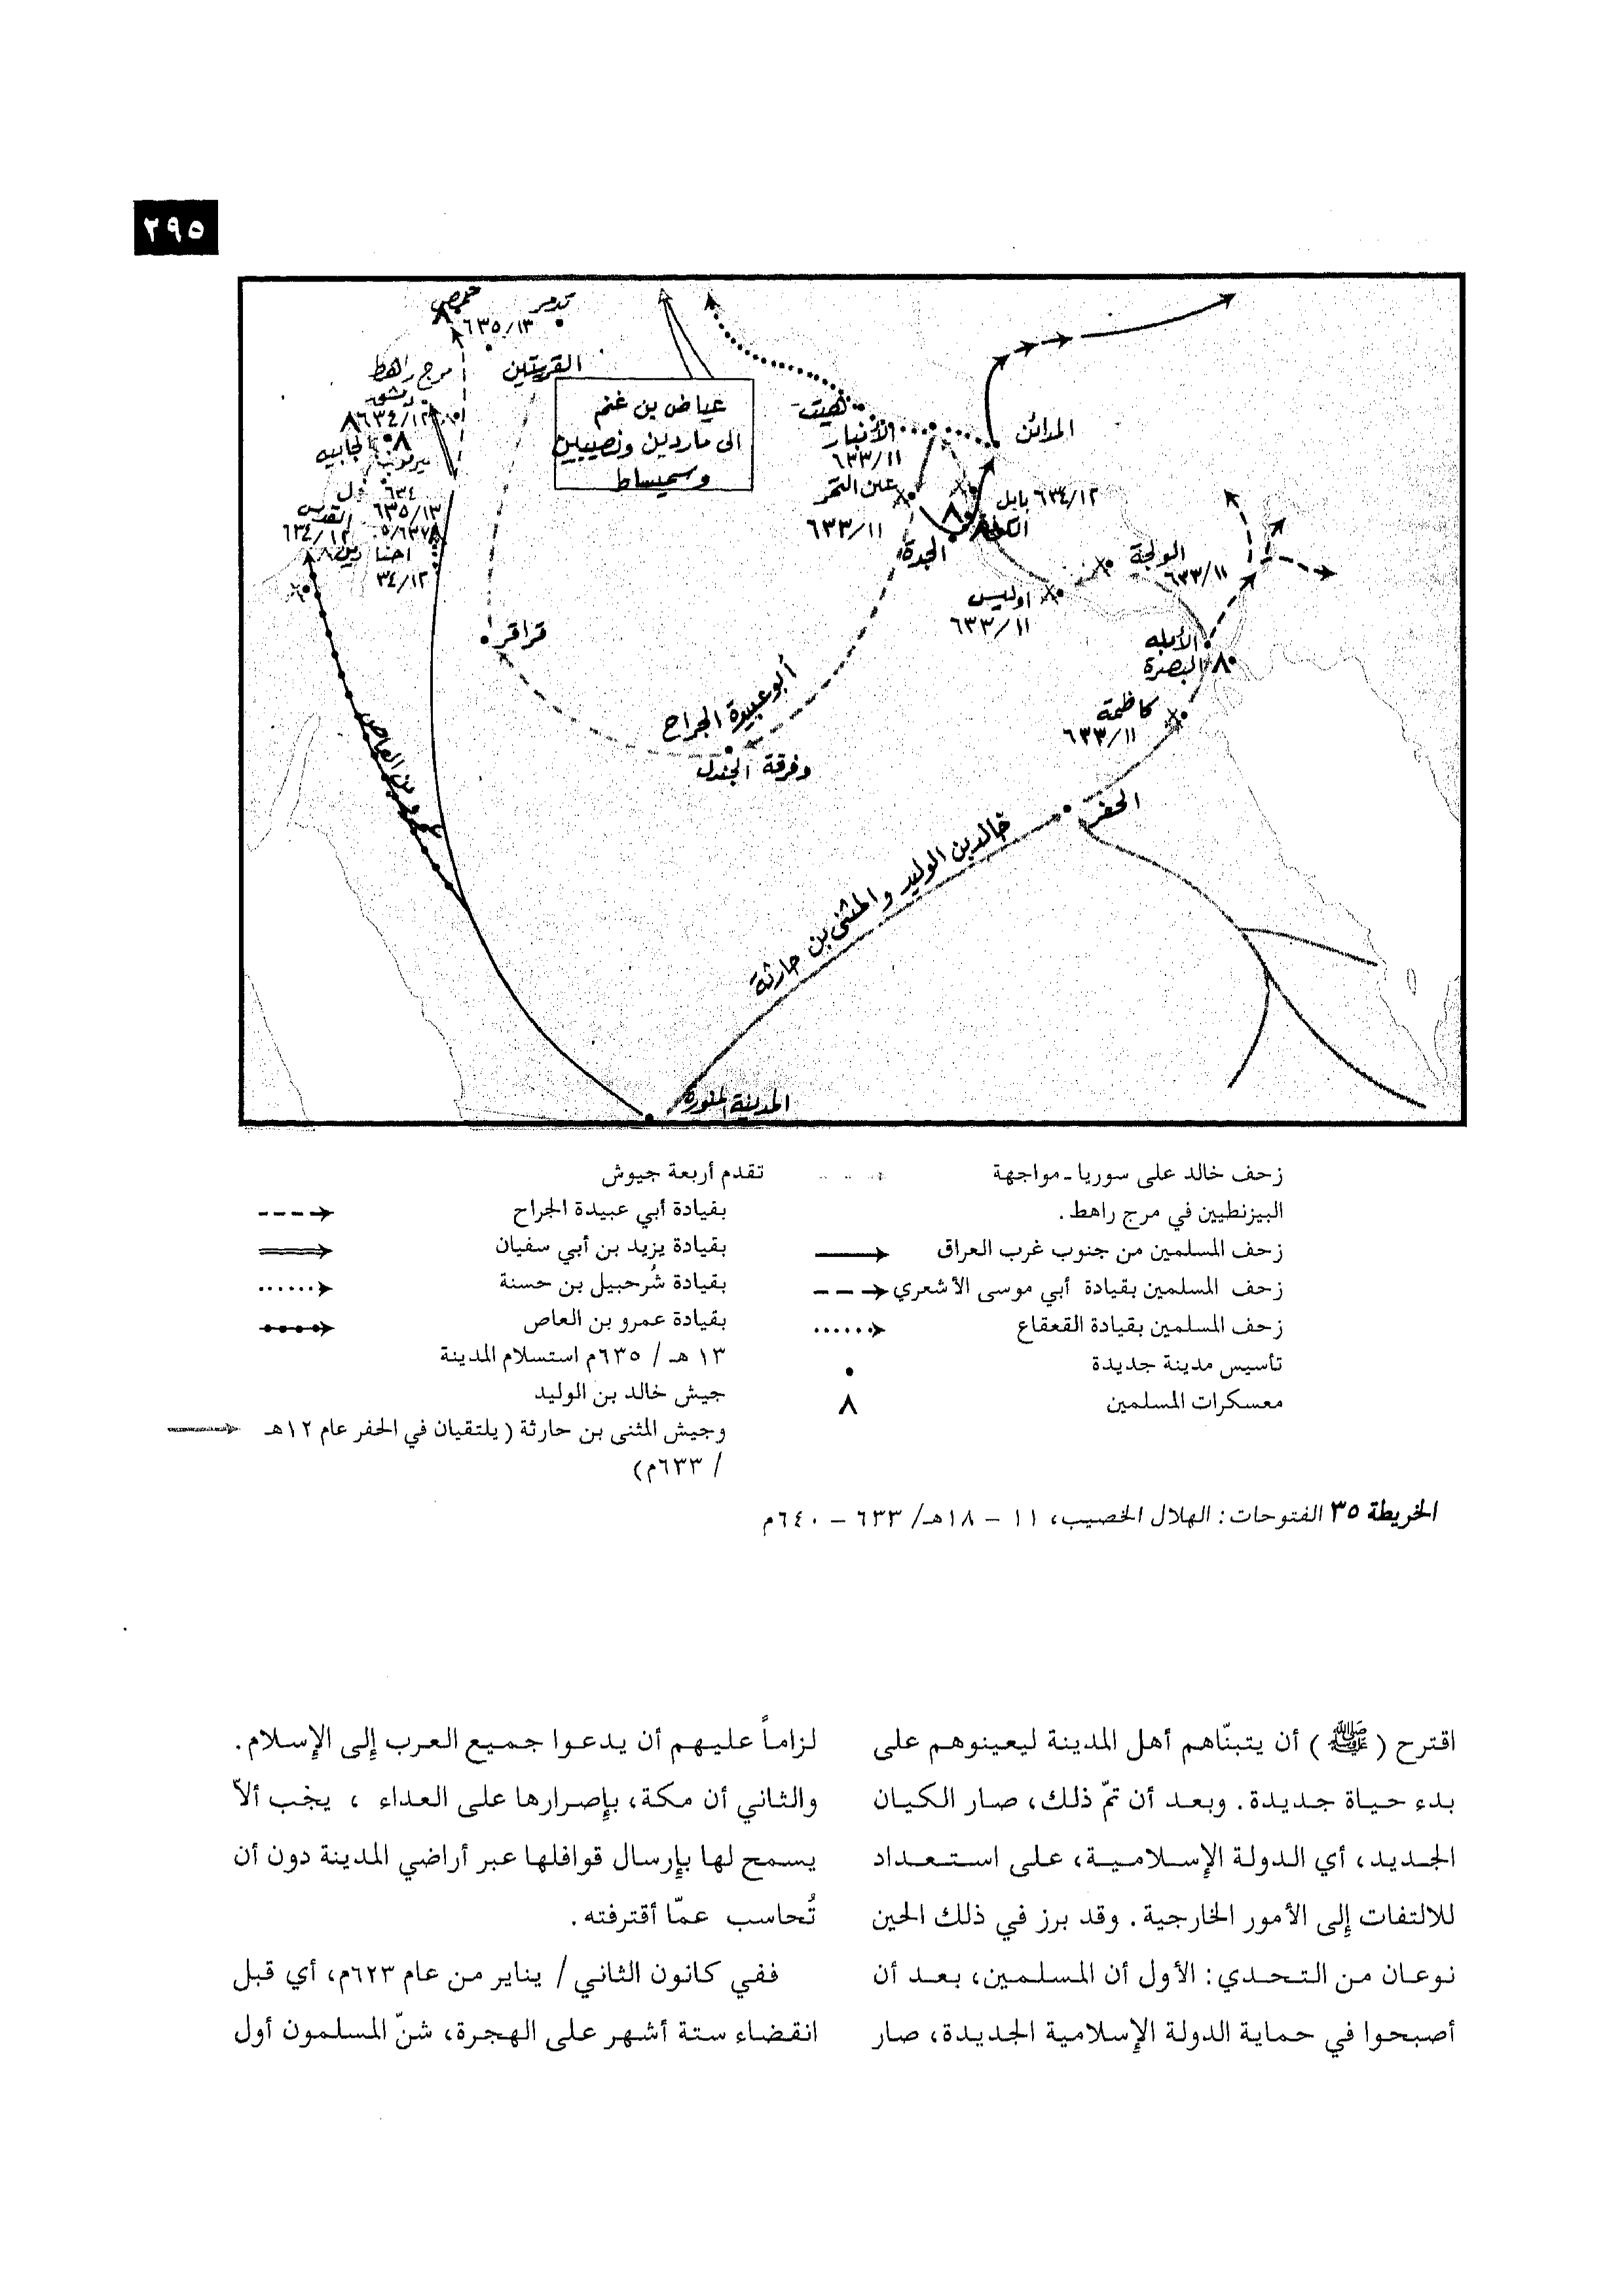 ٢٩٥
حمص
تدمر
٦٣٥/١٣
القريتين
مرج راهط
دمشق
٦٣٤/١٢
الجابيه
عياض بن غنم
الى ماردين ونصيبين
وسميساط
هيت
الأنبار
٦٣٣/١١
عين التمر
٦٣٣/١١
المدائن
٦٣٤/١٢ بابل
الحيرة
الولجة
٦٣٣/١١
اوليس
٦٣٣/١١
القدس
٦٣٤/١٢
٦٣٤
٦٣٥/١٣
٣٤/١٢
قراقر
الأبله
البصرة
كاظمة
٦٣٣/١١
أبو عبيدة الجراح
الحفر
خالد بن الوليد والمثنى بن حارثة
عمرو بن العاص
المدينة المنورة
زحف خالد على سوريا ـ مواجهة
البيزنطيين في مرج راهط.
زحف المسلمين من جنوب غرب العراق
زحف المسلمين بقيادة أبي موسى الأشعري
زحف المسلمين بقيادة القعقاع
تأسيس مدينة جديدة
معسكرات المسلمين
تقدم أربعة جيوش
بقيادة أبي عبيدة الجراح
بقيادة يزيد بن أبي سفيان
بقيادة شُرحبيل بن حسنة
بقيادة عمرو بن العاص
١٣ هـ / ٦٣٥م استسلام المدينة
جيش خالد بن الوليد
وجيش المثنى بن حارثة ( يلتقيان في الحفر عام ١٢هـ
/ ٦٣٣م)
الخريطة ٣٥ الفتوحات: الهلال الخصيب، ١١ – ١٨هـ/ ٦٣٣ – ٦٤٠م
اقترح (ﷺ) أن يتبنّاهم أهل المدينة ليعينوهم على
بدء حياة جديدة. وبعد أن تمّ ذلك، صار الكيان
الجديد، أي الدولة الإسلامية، على استعداد
للالتفات إلى الأمور الخارجية. وقد برز في ذلك الحين
نوعان من التحدي: الأول أن المسلمين، بعد أن
أصبحوا في حماية الدولة الإسلامية الجديدة، صار
لزاماً عليهم أن يدعوا جميع العرب إلى الإسلام.
والثاني أن مكة، بإصرارها على العداء ، يجب ألاّ
يسمح لها بإرسال قوافلها عبر أراضي المدينة دون أن
تُحاسب عمّا أقترفته.
ففي كانون الثاني/ يناير من عام ٦٢٣م، أي قبل
انقضاء ستة أشهر على الهجرة، شنّ المسلمون أول